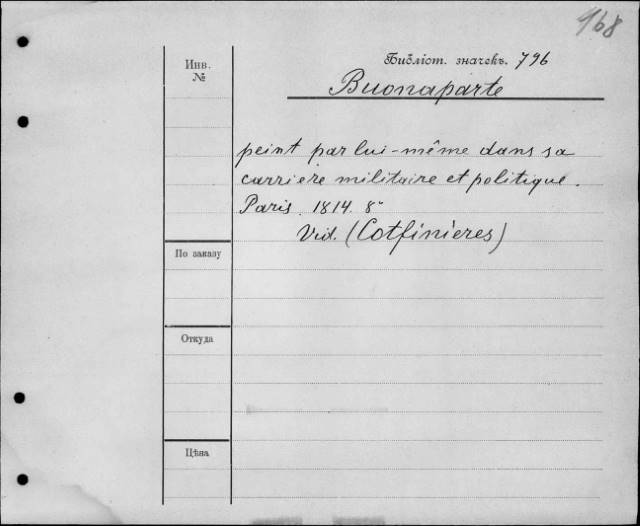 168
Библіот. значекъ. 796
Инв.
№
Buonaparte
peint par lui-même dans sa
carriere militaire et politique.
Paris. 1814. 8°
Vid. (Cotfinieres)
По заказу
Откуда
Цѣна